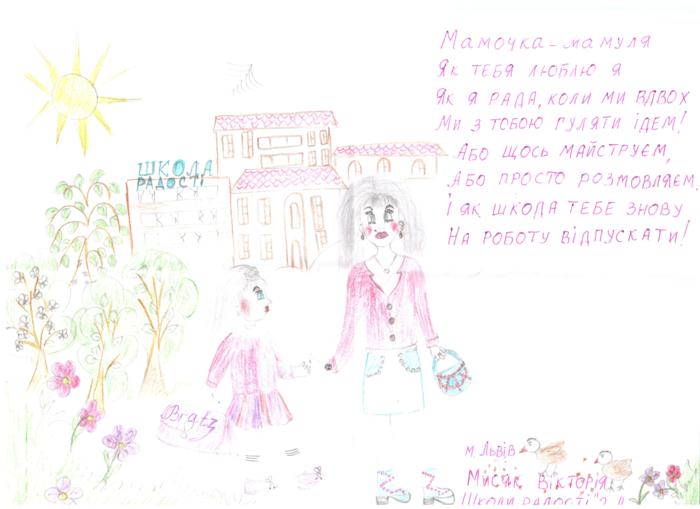 Мамочка-мамуля
Як тебя люблю я
Як я рада, коли ми вдвох
Ми з тобою гуляти ідем!
Або щось майструєм,
Або просто розмовляєм.
І як шкода тебе знову
На роботу відпускати!
ШКОЛА
РАДОСТІ
Bratz
м. Львів
Мисяк Вікторія
Школи радості "2